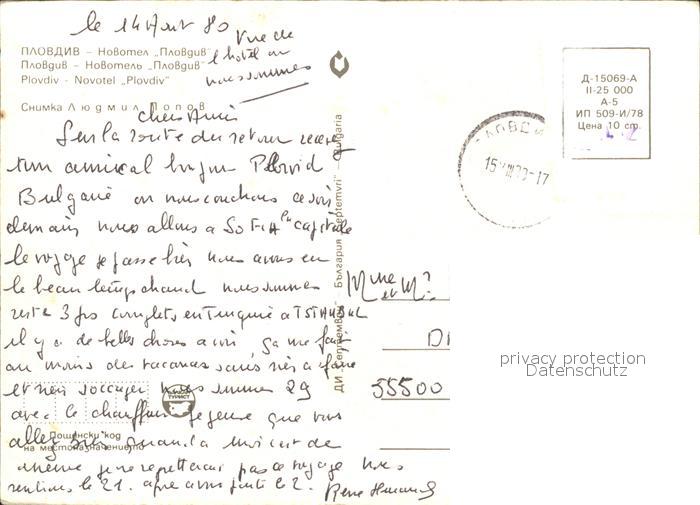 le 14 Aout 80
Vue de
l'hotel ou
nous sommes
ПЛОВДИВ – Новотел „Пловдив"
Пловдив - Новотель „Пловдив"
Plovdiv - Novotel „Plovdiv"
Снимка Людмил Попов
chers Amis
Sur la route du retour recevez
un amical bonjour Plovid
Bulgarie ou nous couchons ce soir
demain nous allons a SOFIA la capitale
le voyage se passe bien nous avons eu
le beau temps chaud nous sommes
reste 3 jours complets en Turquie a ISTANBUL
il y a de belles choses a voir, ça me fait
au moins des vacances sans rien a faire
et rien s'occuper nous sommes 29
avec le chauffeur je pense que vous
allez bien quand a
meme je ne regretterai pas ce voyage nous
rentrons le 21. apres avoir parti le 2. Rene
Пощенски код
на местоназначението
ТУРИСТ
ДИ „Септември" – България „Septemvri" – Bulgaria
Д-15069-А
II-25 000
А-5
ИП 509-И/78
Цена 10 ст.
ПЛОВДИВ
15 VIII 80-17
Mme
et Mr
DI
55500
privacy protection
Datenschutz